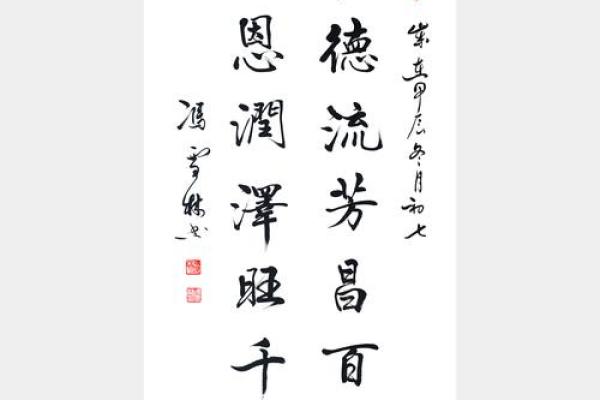 歲在甲辰冬月初七
德流芳昌百
恩潤澤旺千
馮雪林书